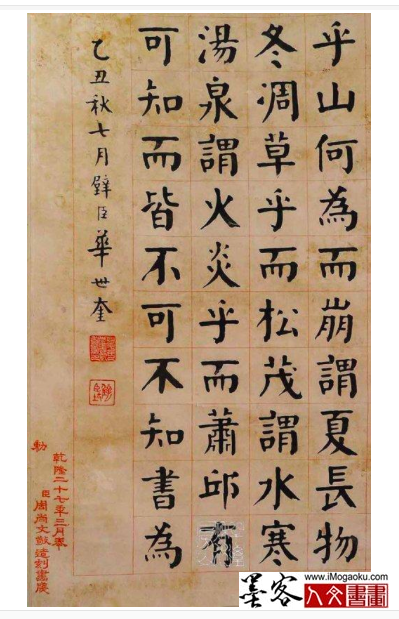 乎山何為而崩謂夏長物
冬凋草乎而松茂謂水寒
湯泉謂火炎乎而蕭邱有
可知而皆不可不知書為
乙丑秋七月璧臣華世奎
乾隆二十七年三月奉
勅
臣周尚文敬造刻書扆
墨客
www.iMogaoku.com
人文書畫